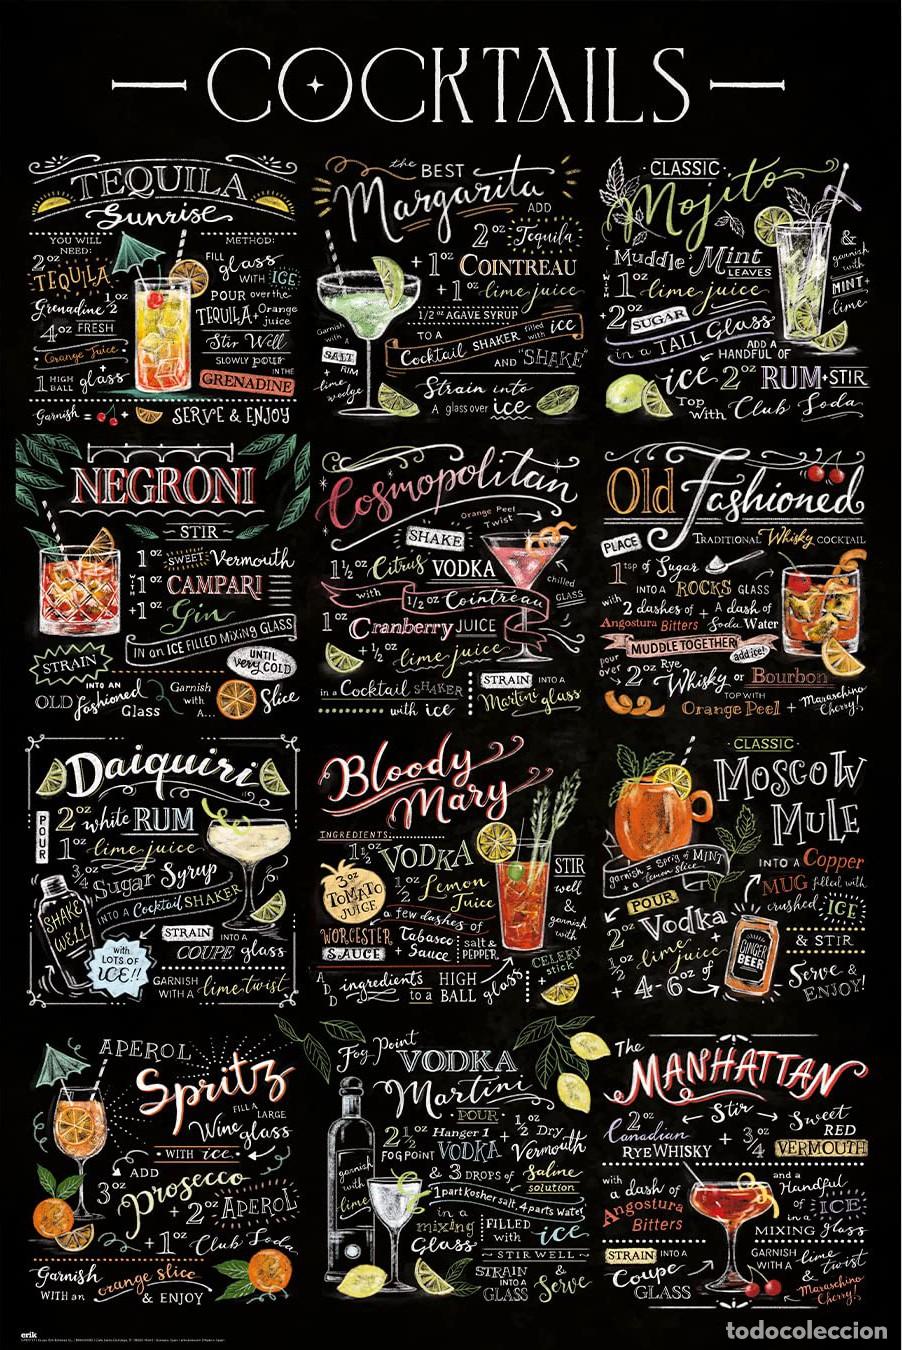 COCKTAILS
TEQUILA
Sunrise
YOU WILL NEED:
2oz
TEQUILA
Grenadine 1/2 oz
4oz FRESH
Orange Juice
+
1 HIGH BALL glass
METHOD:
FILL glass
WITH ICE
POUR over the
TEQUILA + Orange juice
Stir Well
SLOWLY pour
IN THE
GRENADINE
Garnish = + SERVE & ENJOY
the BEST
Margarita
ADD
2oz Tequila
+ 1oz COINTREAU
+ 1oz lime juice
1/2 oz AGAVE SYRUP
TO A
Cocktail SHAKER filled with ice
AND "SHAKE"
Garnish with a
SALT
RIM
+ lime wedge
Strain into
A glass over ice
CLASSIC
Mojito
Muddle Mint
LEAVES
WITH
1oz lime juice
+ 2oz SUGAR
in a TALL Glass
ADD A
HANDFUL OF
ice 2oz RUM + STIR
Top With Club Soda
& garnish with
MINT +
lime
NEGRONI
STIR
1oz SWEET Vermouth
WITH 1oz CAMPARI
+ 1oz Gin
IN an ICE FILLED MIXING GLASS
STRAIN
UNTIL very COLD
OLD INTO AN fashioned Glass
Garnish with A... Slice
Cosmopolitan
Orange Peel Twist
SHAKE
1 1/2 oz Citrus VODKA
with 1/2 oz Cointreau
1oz Cranberry JUICE
+ 1/2 oz lime juice
in a Cocktail SHAKER
with ice
chilled GLASS
STRAIN INTO A
Martini glass
Old Fashioned
PLACE
TRADITIONAL Whisky COCKTAIL
1 tsp of Sugar
INTO A ROCKS GLASS
with 2 dashes of Angostura Bitters + A dash of Soda Water
MUDDLE TOGETHER
add ice!
pour over 2oz Rye
Whisky or Bourbon
TOP WITH
Orange Peel + Maraschino Cherry!
Daiquiri
POUR
2oz white RUM
1oz lime juice
3/4 oz Sugar Syrup
INTO A Cocktail SHAKER
SHAKE WELL
with LOTS OF ICE!!
STRAIN INTO A
COUPE glass
GARNISH WITH A lime twist
Bloody Mary
INGREDIENTS:
1 1/2 oz VODKA
3oz TOMATO JUICE
1/2 oz Lemon Juice
a few dashes of
WORCESTER SAUCE + Tabasco Sauce
salt & PEPPER
ADD ingredients to a HIGH BALL glass
STIR
well
&
garnish with
CELERY stick
+
CLASSIC
MOSCOW
MULE
garnish = Sprig of MINT
+ a lemon slice
INTO A Copper
MUG filled with
crushed ICE
POUR
2oz Vodka
1/2 oz lime juice
+ 4-6oz of
GINGER BEER
& STIR
Serve &
ENJOY!
APEROL
Spritz
FILL A LARGE
Wine glass
WITH ice
ADD
3oz prosecco
+ 2oz APEROL
+ 1oz Club Soda
Garnish
WITH an orange slice
& ENJOY
Fog Point
VODKA
Martini
POUR
2 1/2 oz Hanger 1 FOG POINT VODKA + 1/2 oz Dry Vermouth
& 3 DROPS of Saline solution
1 part Kosher salt, 4 parts water
in a mixing Glass
FILLED with ice
STIR WELL
STRAIN INTO A GLASS & Serve
garnish with lime
The
MANHATTAN
Stir
2oz Canadian RYE WHISKY + 3/4 oz Sweet RED VERMOUTH
with a dash of Angostura Bitters
and a Handful of ICE
in a MIXING glass
STRAIN INTO A
Coupe GLASS
GARNISH with a lime twist
& Maraschino Cherry!
erik
todocoleccion